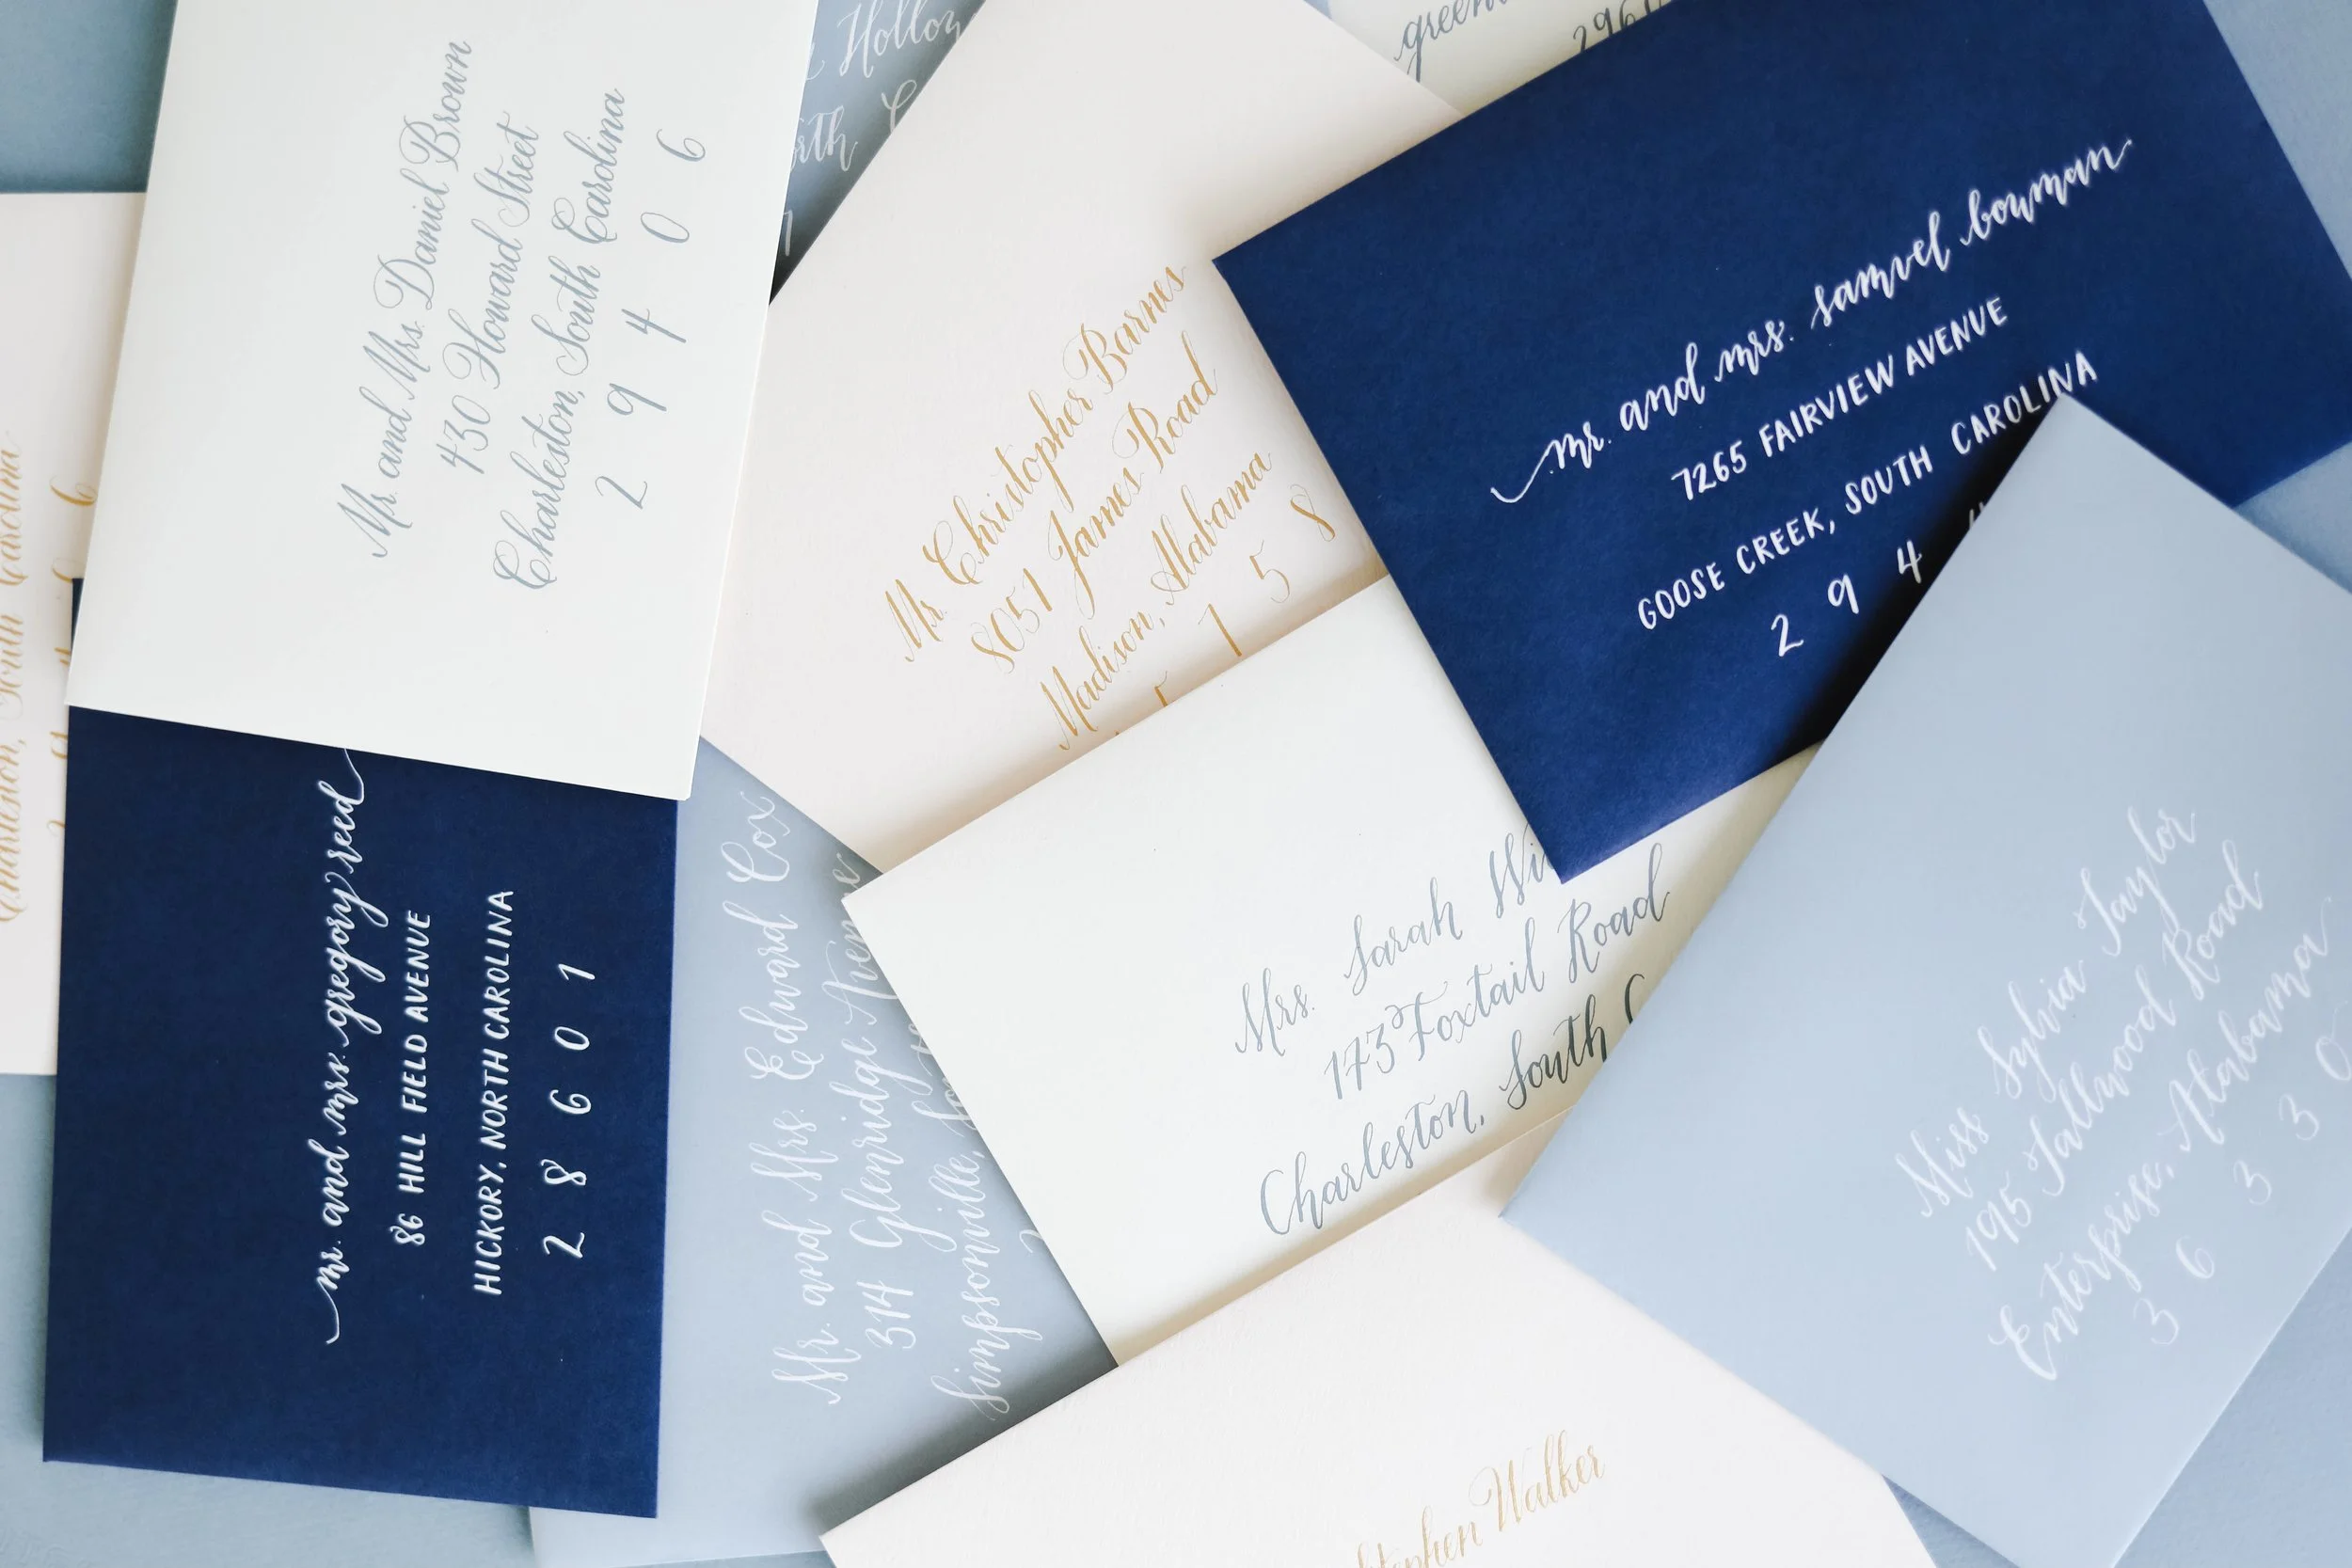 Mr. and Mrs. Daniel Brown
430 Howard Street
Charleston, South Carolina
2 9 4 0 6
Hollow
7
green
2960
Mr. Christopher Barnes
8051 James Road
Madison, Alabama
5 7 5 8
mr. and mrs. samuel bowman
7265 FAIRVIEW AVENUE
GOOSE CREEK, SOUTH CAROLINA
2 9 4 4
South Carolina
6
mr. and mrs. gregory reed
86 HILL FIELD AVENUE
HICKORY, NORTH CAROLINA
2 8 6 0 1
Mr. and Mrs. Edward Cox
314 Glenridge Avenue
Simpsonville,
2
Mrs. Sarah Wi
173 Foxtail Road
Charleston, South C
Miss Sylvia Taylor
195 Tallwood Road
Enterprise, Alabama
3 6 3 3 0
Stephen Walker